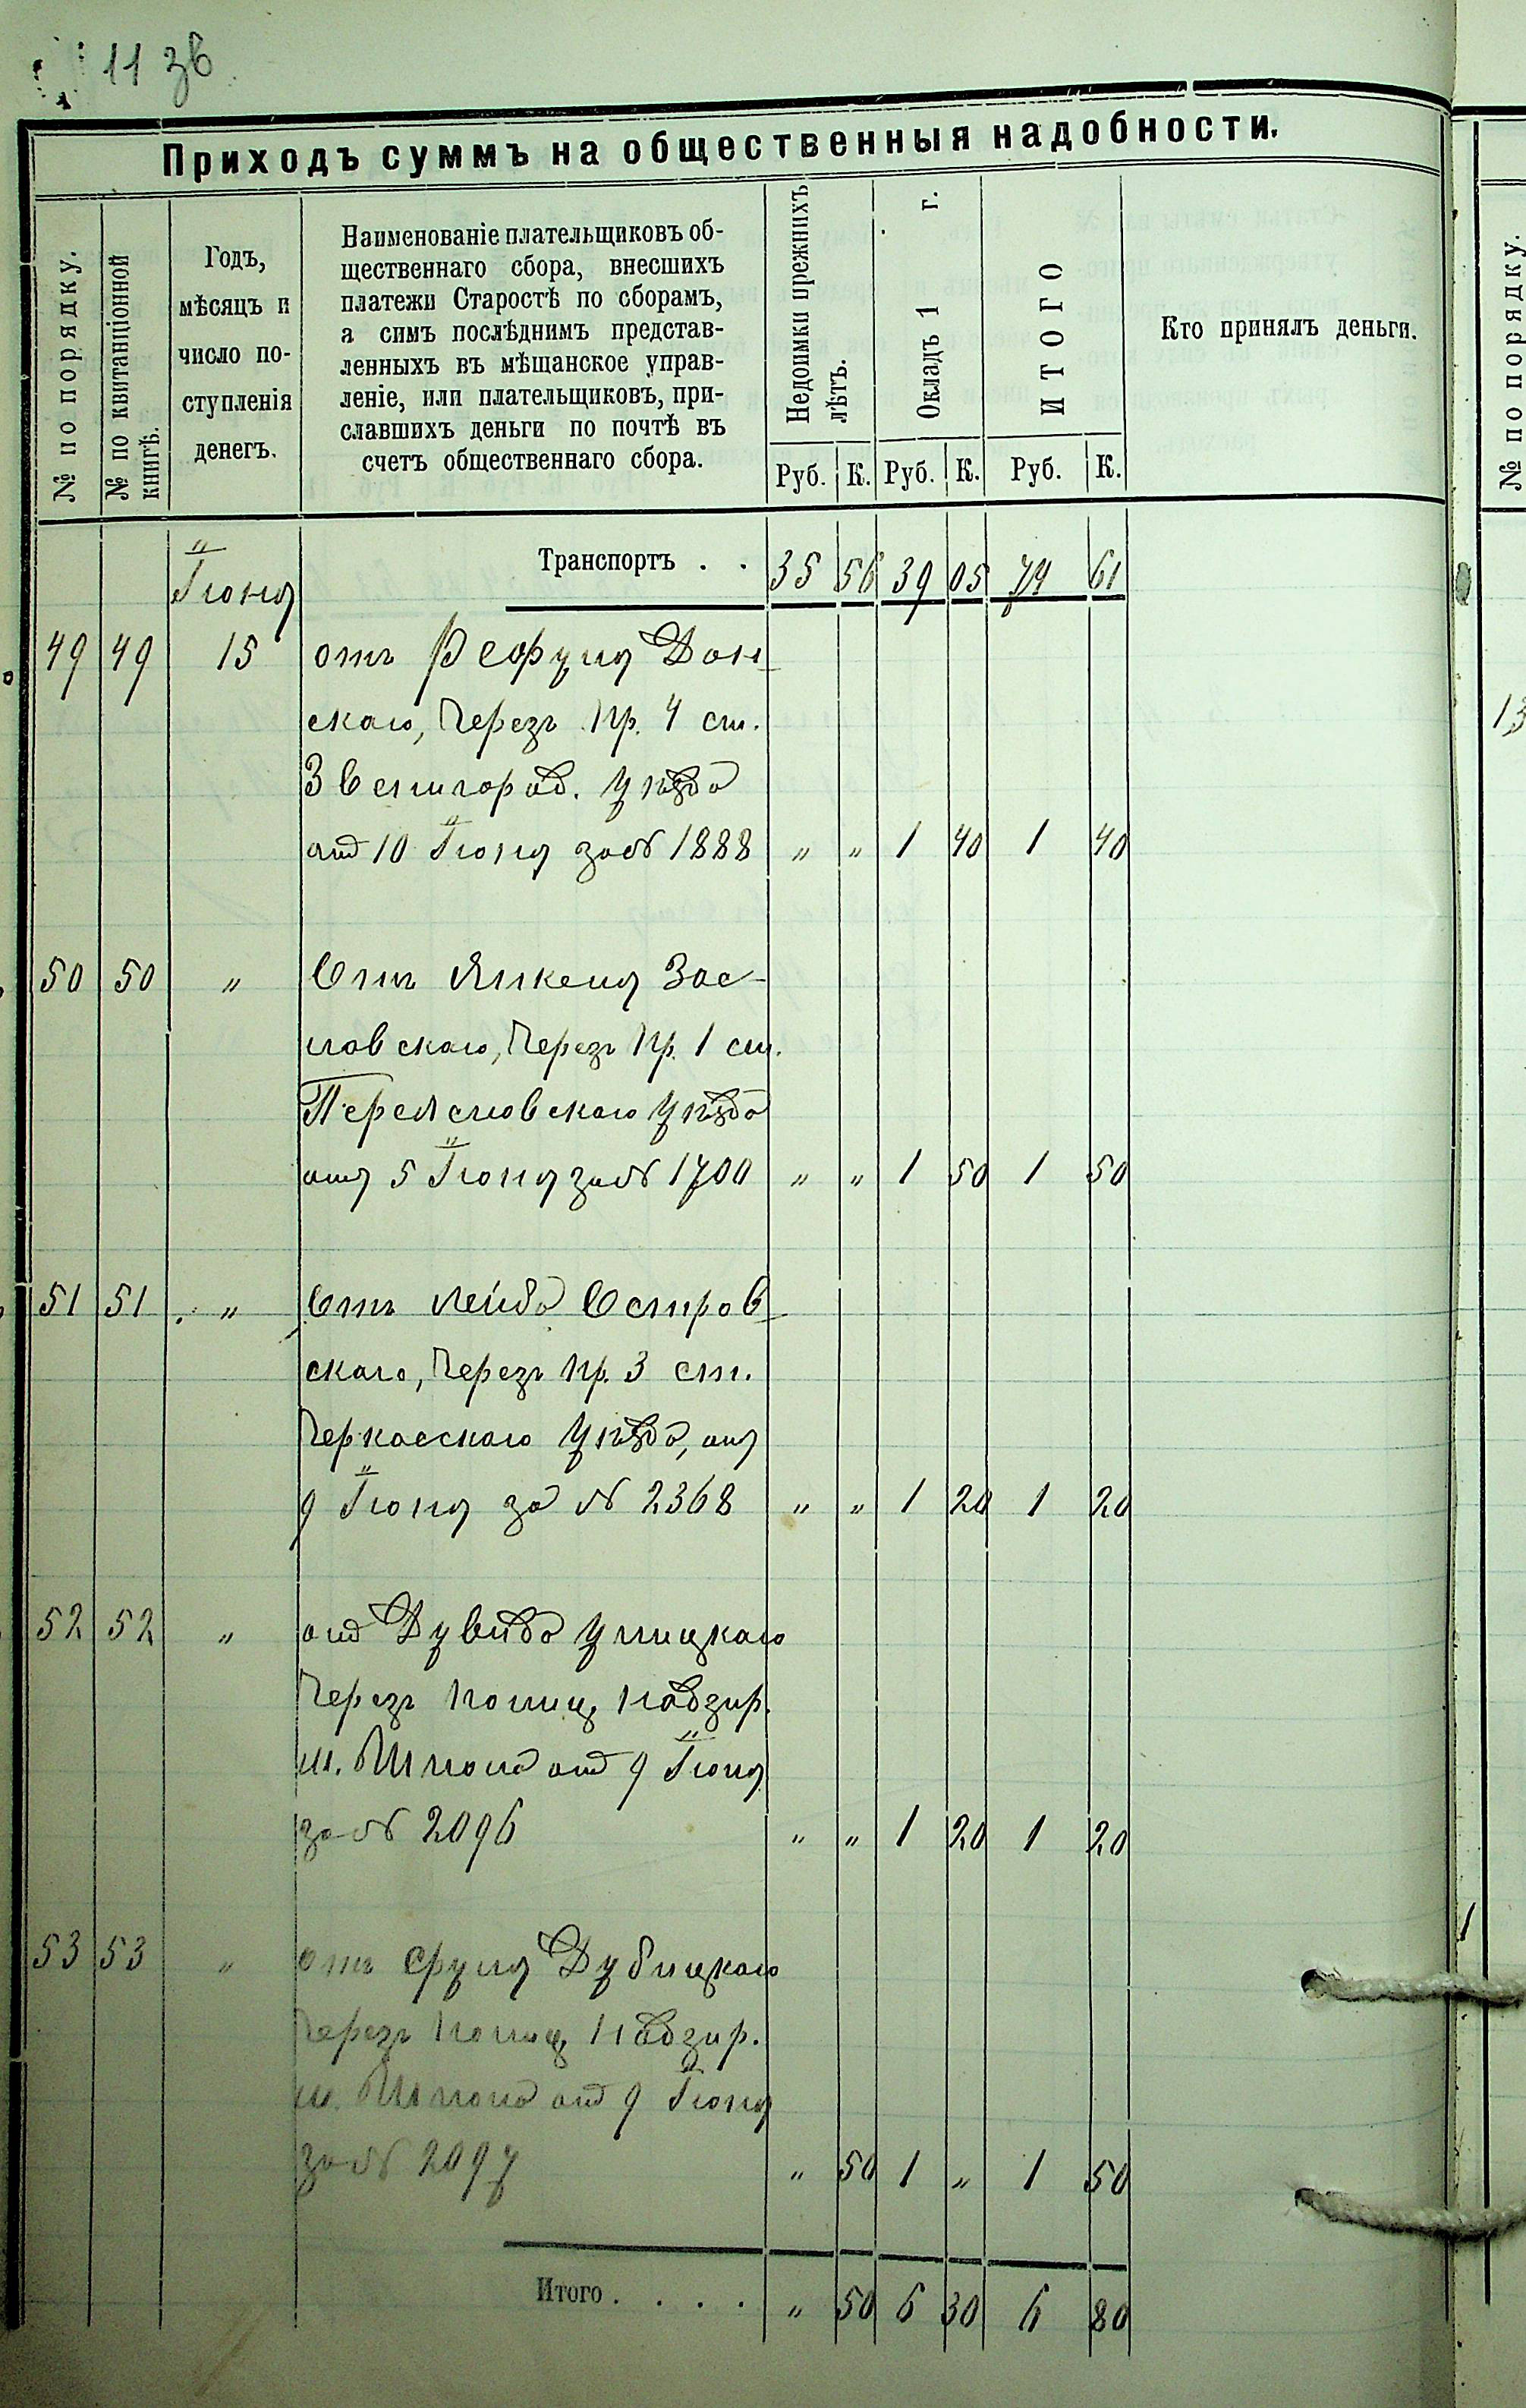 11 зв
Приходъ суммъ на общественныя надобности.
№ по порядку.
№ по квитанціонной книгѣ.
Годъ,
мѣсяцъ и
число по-
ступленія
денегъ.
Наименованіе плательщиковъ об-
щественнаго сбора, внесшихъ
платежи Старостѣ по сборамъ,
а симъ послѣднимъ представ-
ленныхъ въ мѣщанское управ-
леніе, или плательщиковъ, при-
славшихъ деньги по почтѣ въ
счетъ общественнаго сбора.
Недоимки прежнихъ
лѣтъ.
Окладъ 1 г.
ИТОГО
Кто принялъ деньги.
Руб. К. Руб. К. Руб. К.
Транспортъ . . 35 56 39 05 74 61
Іюня
49 49 15 отъ Дон-
скаго, Черезъ Пр. 4 ст.
Звенигород. уѣзда
отъ 10 Іюня за № 1888 " " 1 40 1 40
50 50 " Отъ Янкеля Зас-
лавскаго, Черезъ Пр. 1 ст.
Переяславскаго уѣзда
отъ 5 Іюня за № 1700 " " 1 50 1 50
51 51 " Отъ Лейба Остров-
скаго, Черезъ Пр. 3 ст.
Черкасскаго уѣзда, отъ
9 Іюня за № 2368 " " 1 20 1 20
52 52 " отъ Дувида Улицкаго
Черезъ Полиц. Надзир.
м. Шпола отъ 9 Іюня
за № 2096 " " 1 20 1 20
53 53 " отъ Сруля Дубицкаго
Черезъ Полиц. Надзир.
м. Шпола отъ 9 Іюня
за № 2097 " 50 1 " 1 50
Итого . . . . " 50 6 30 6 80
№ по порядку.
13
1